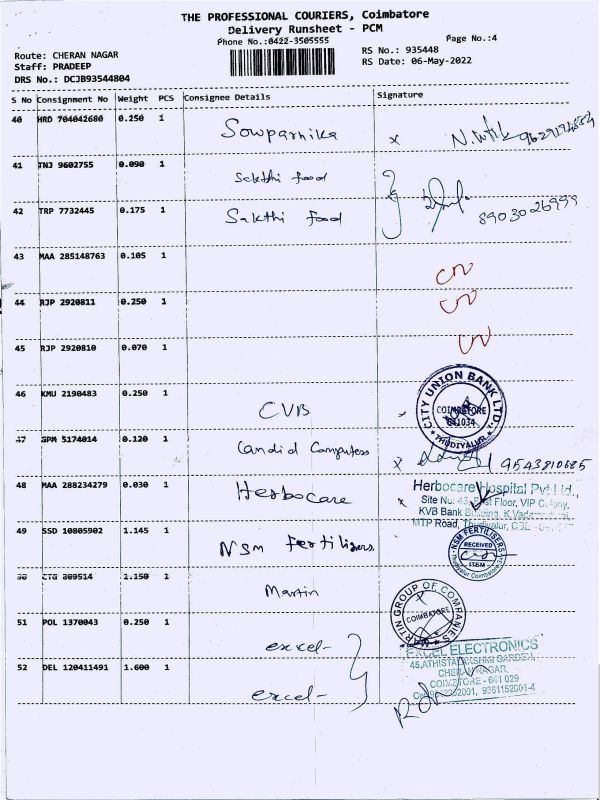 THE PROFESSIONAL COURIERS, Coimbatore
Delivery Runsheet - PCM
Phone No.:0422-3505555
Page No.:4
Route: CHERAN NAGAR
RS No.: 935448
Staff: PRADEEP
RS Date: 06-May-2022
DRS No.: DCJB93544804
S No Consignment No Weight PCS Consignee Details Signature
40 HRD 704042680 0.250 1 Sowparnika x
41 TNJ 9602755 0.090 1 Sakthi food
42 TRP 7732445 0.175 1 Sakthi food 8903026999
43 MAA 285148763 0.105 1
44 RJP 2920811 0.250 1
45 RJP 2920810 0.070 1
46 KMU 2190483 0.250 1 CVB
CITY UNION BANK LTD.
COIMBATORE
641034
THUDIYALUR
47 GPM 5174014 0.120 1 Candid Computers x 9543810685
48 MAA 288234279 0.030 1 Herbocare x
Herbocare Hospital Pvt Ltd.,
Site No: 43, First Floor, VIP Colony,
KVB Bank Building, K.Vada
MTP Road, Thudiyalur,
49 SSD 10805902 1.145 1 NSM Fertilizers
NSM FERTILISERS
RECEIVED
Thudiyalur Coimbatore
50 CTG 809514 1.150 1 Martin
MARTIN GROUP OF COMPANIES
COIMBATORE
51 POL 1370043 0.250 1 excel-
52 DEL 120411491 1.600 1 excel-
EXCEL ELECTRONICS
45,ATHISTALAKSHMI GARDEN,
CHERAN NAGAR,
COIMBATORE - 641 029
9361152001-4